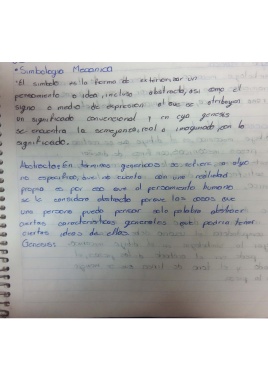 Simbología Masonica
"El simbolo es la forma de exteriorizar un
pensamiento o idea, incluso abstracto, así como el
signo o medio de expresion al que se atribuye
un significado convencional y en cuya genesis
se encuentra la semejanza, real o imaginada con lo
significado.
Abstracto: En terminos genericos se refiere a algo
no especifico, que no cuenta con una realidad
propia es por eso que al pensamiento humano
se le considera abstracto porque las cosas que
una persona puede pensar solo pueden abstraer
ciertas caracteristicas generales que podria tener
ciertas ideas de ellas.
Genesis: